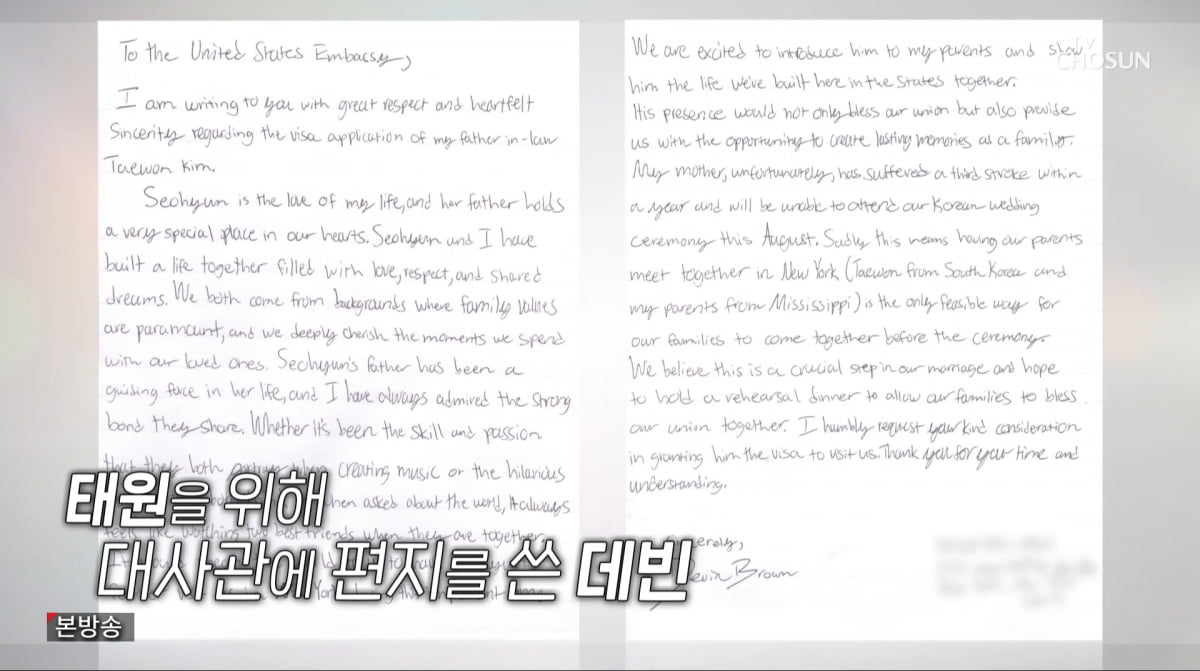 To the United States Embassy,
I am writing to you with great respect and heartfelt
Sincerity regarding the visa application of my father-in-law
Taewon Kim.
Seohyun is the love of my life, and her father holds
a very special place in our hearts. Seohyun and I have
built a life together filled with love, respect, and shared
dreams. We both come from backgrounds where family values
are paramount, and we deeply cherish the moments we spend
with our loved ones. Seohyun's father has been a
guiding force in her life, and I have always admired the strong
bond they share. Whether it's been the skill and passion
that they both creating music or the hilarious
when asked about the world, it always
feels like watching two best friends when they are together.
We are excited to introduce him to my parents and show
him the life we've built here in the States together.
His presence would not only bless our union but also provide
us with the opportunity to create lasting memories as a family.
My mother, unfortunately, has suffered a third stroke within
a year and will be unable to attend our Korean wedding
ceremony this August. Sadly this means having our parents
meet together in New York (Taewon from South Korea and
my parents from Mississippi) is the only feasible way for
our families to come together before the ceremony.
We believe this is a crucial step in our marriage and hope
to hold a rehearsal dinner to allow our families to bless
our union together. I humbly request your kind consideration
in granting him the visa to visit us. Thank you for your time and
understanding.
Sincerely,
Devin Brown
TV CHOSUN
태원을 위해
대사관에 편지를 쓴 데빈
본방송